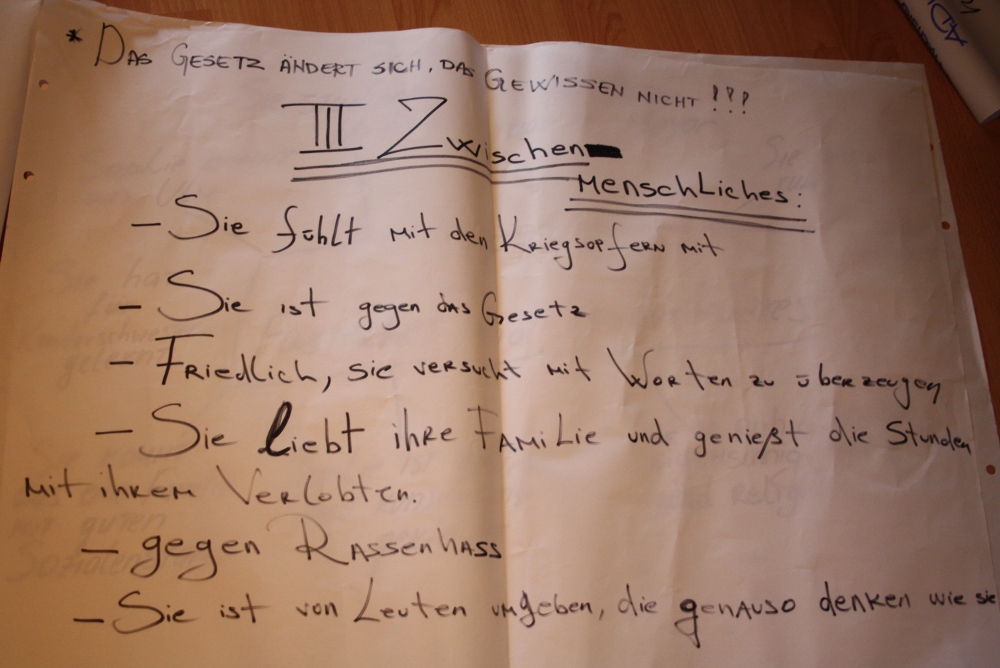 * DAS GESETZ ÄNDERT SICH, DAS GEWISSEN NICHT !??
III Zwischen
menschliches:
– Sie fühlt mit den Kriegsopfern mit
– Sie ist gegen das Gesetz
– Friedlich, sie versucht mit Worten zu überzeugen
– Sie liebt ihre Familie und genießt die Stunden
mit ihrem Verlobten.
– gegen Rassenhass
– Sie ist von Leuten umgeben, die genauso denken wie sie